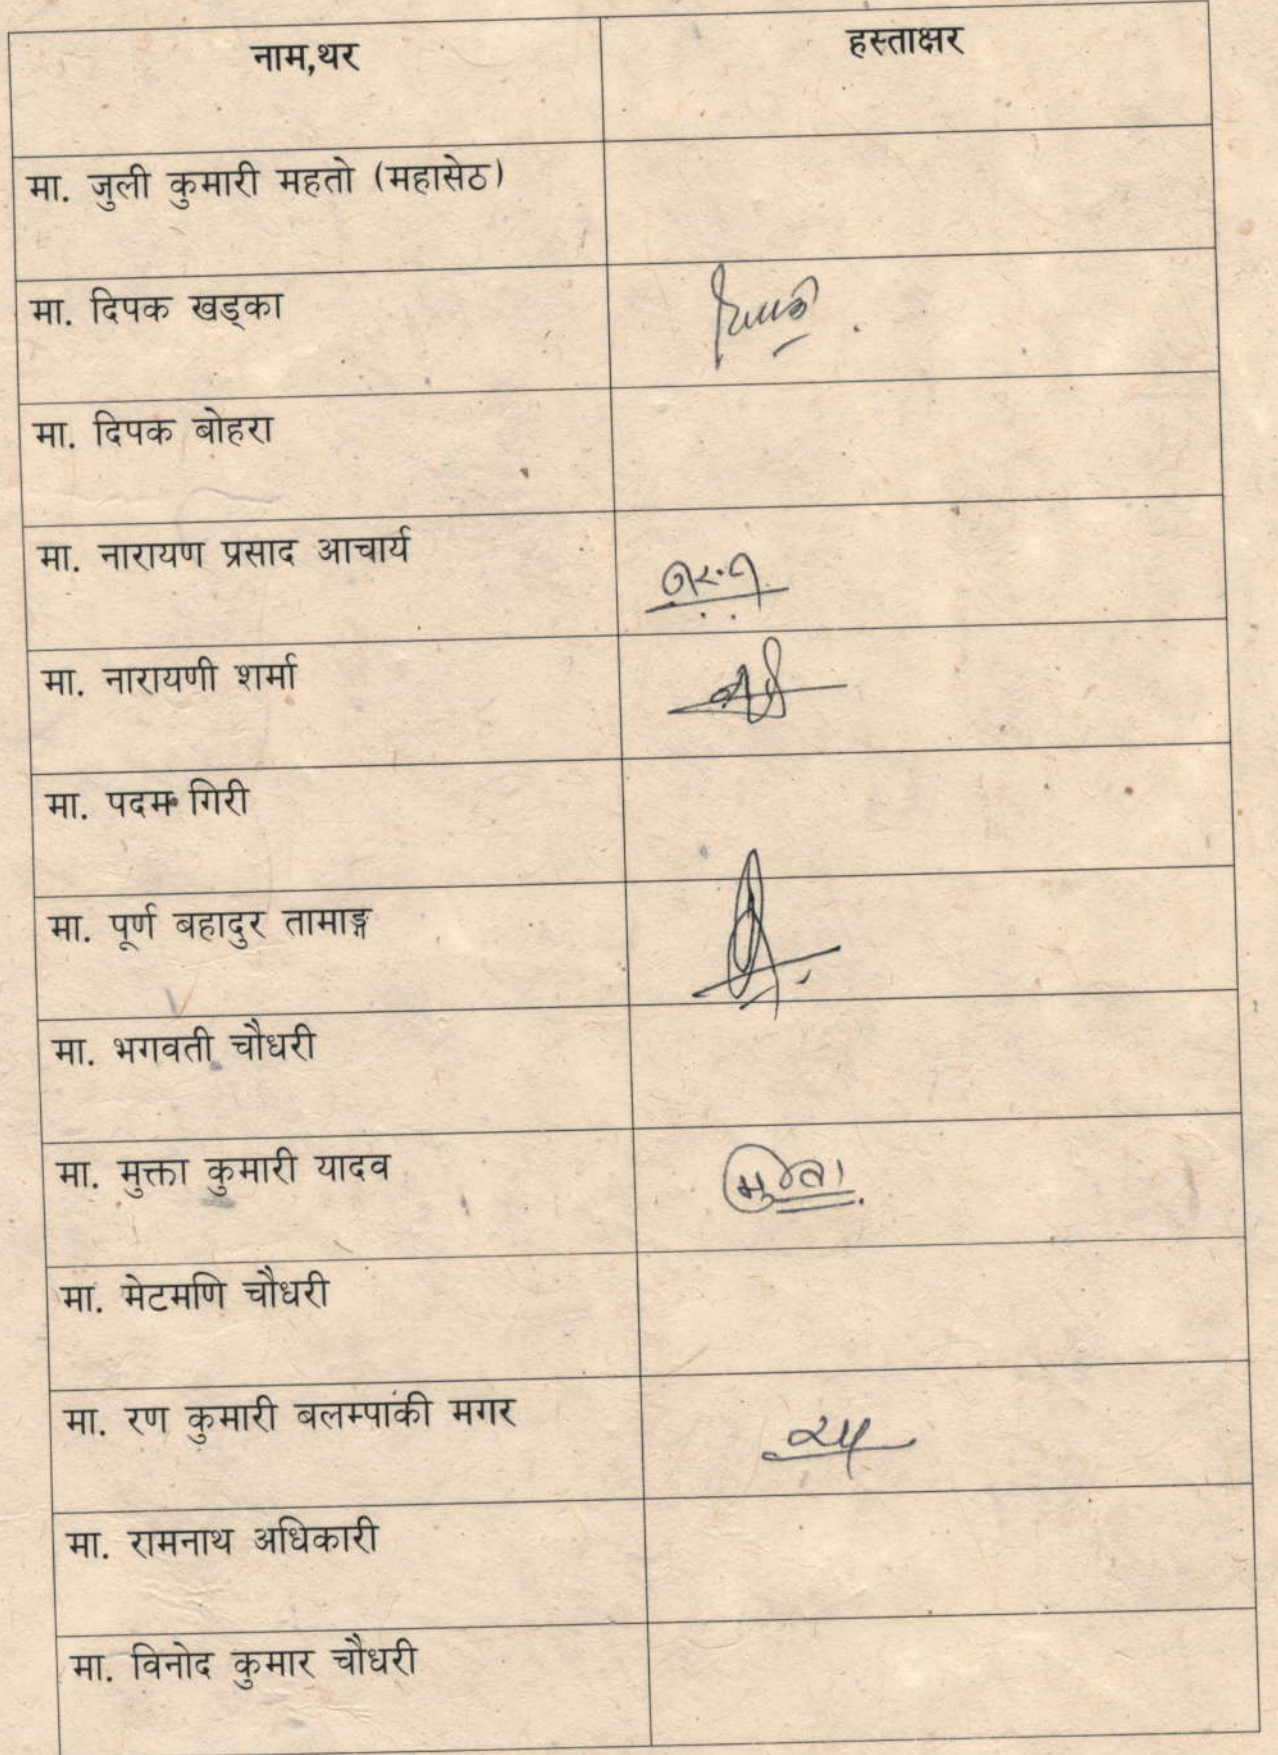 नाम,थर हस्ताक्षर
मा. जुली कुमारी महतो (महासेठ)
मा. दिपक खड्का
मा. दिपक बोहरा
मा. नारायण प्रसाद आचार्य
मा. नारायणी शर्मा
मा. पदम गिरी
मा. पूर्ण बहादुर तामाङ्ग
मा. भगवती चौधरी
मा. मुक्ता कुमारी यादव
मा. मेटमणि चौधरी
मा. रण कुमारी बलम्पाकी मगर
मा. रामनाथ अधिकारी
मा. विनोद कुमार चौधरी